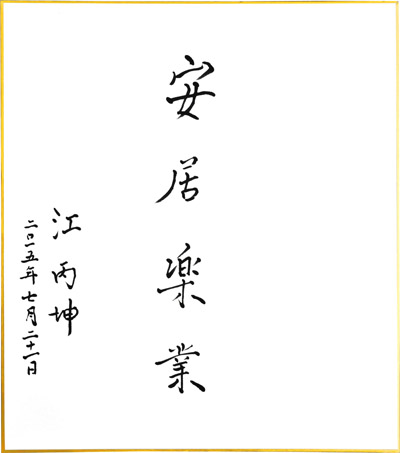 安居楽業
江丙坤
二〇一五年七月二十一日